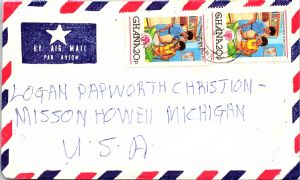 BY AIR MAIL
PAR AVION
GHANA 20P
GHANA 20P
LOGAN PAPWORTH CHRISTION-
MISSON HOWELL MICHIGAN
U.S.A